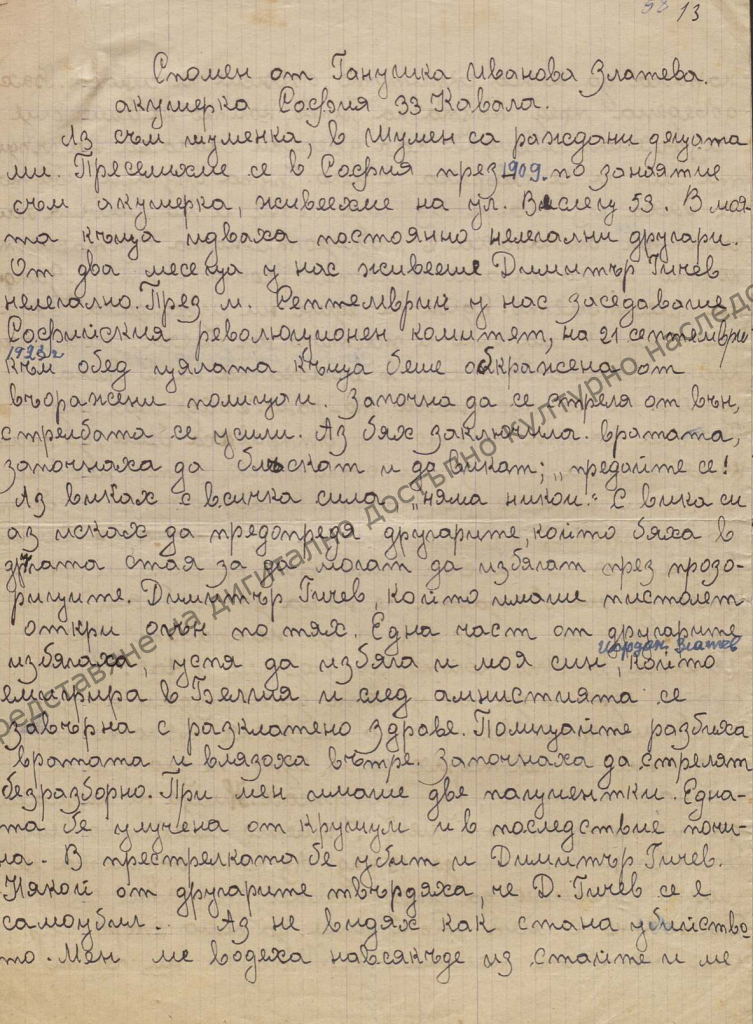 13
Спомен от Ганушка Иванова Златева.
акушерка София 33 Кавала.
Аз съм шуменка, в Шумен са раждани децата
ми. Преселихме се в София през 1909. по занятие
съм акушерка, живеехме на ул. Вислец 53. В моя-
та къща идваха постоянно нелегални другари.
От два месеца у нас живееше Димитър Гичев
нелегално. През м. Септемврий у нас заседаваше
Софийския революционен комитет, на 21 септември
1923 г
към обед цялата къща беше обкражена от
въоражени полицаи. Започна да се стреля от вън,
стрелбата се усили. Аз бях заключила вратата,
започнаха да блъскат и да викат; „предайте се!
Аз виках с всичка сила „няма никои." С вика си
аз исках да предопредя другарите, който бяха в
другата стая за да могат да избягат през прозо-
рците. Димитър Гичев, който имаше пистолет
откри огън по тях. Една част от другарите
Йордан Златев
избягаха, успя да избяга и моя син, който
емигрира в Белгия и след амнистията се
завърна с разклатено здраве. Полицайте разбиха
вратата и влязоха вътре. Започнаха да стрелят
безразборно. При мен имаше две пациентки. Една-
та бе улучена от крушум и в последствие почи-
на. В престрелката бе убит и Димитър Гичев.
Някой от другарите твърдяха, че Д. Гичев се е
самоубил. Аз не видях как стана убийство-
то. Мен ме водеха навсякъде из стайте и ме
представяне на дигитално достъпно културно наследс